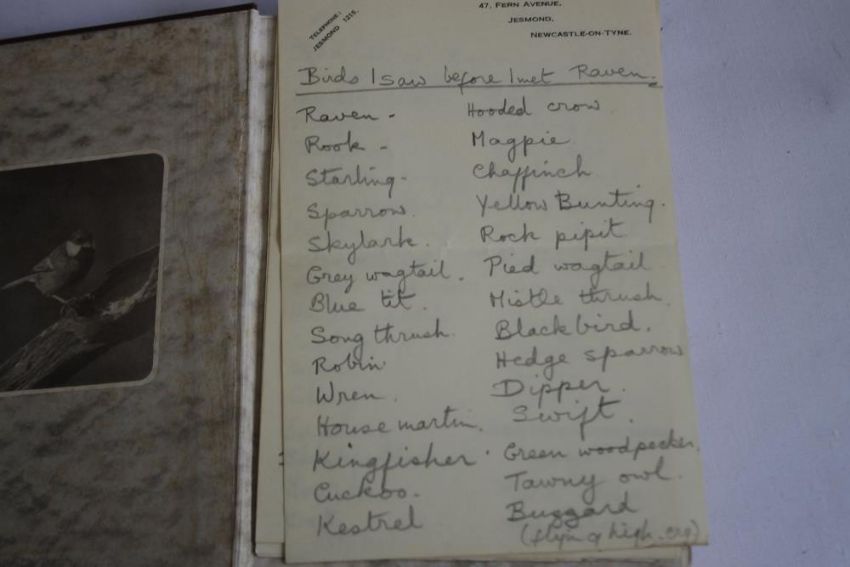 TELEPHONE:
JESMOND 1215.
47, FERN AVENUE,
JESMOND,
NEWCASTLE-ON-TYNE.
Birds I saw before I met Raven.
Raven - Hooded crow
Rook - Magpie
Starling - Chaffinch
Sparrow. Yellow Bunting.
Skylark. Rock pipit
Grey wagtail. Pied wagtail
Blue tit. Mistle thrush.
Song thrush. Blackbird.
Robin Hedge sparrow
Wren. Dipper.
House martin. Swift.
Kingfisher. Green woodpecker.
Cuckoo. Tawny owl.
Kestrel Buzzard
high